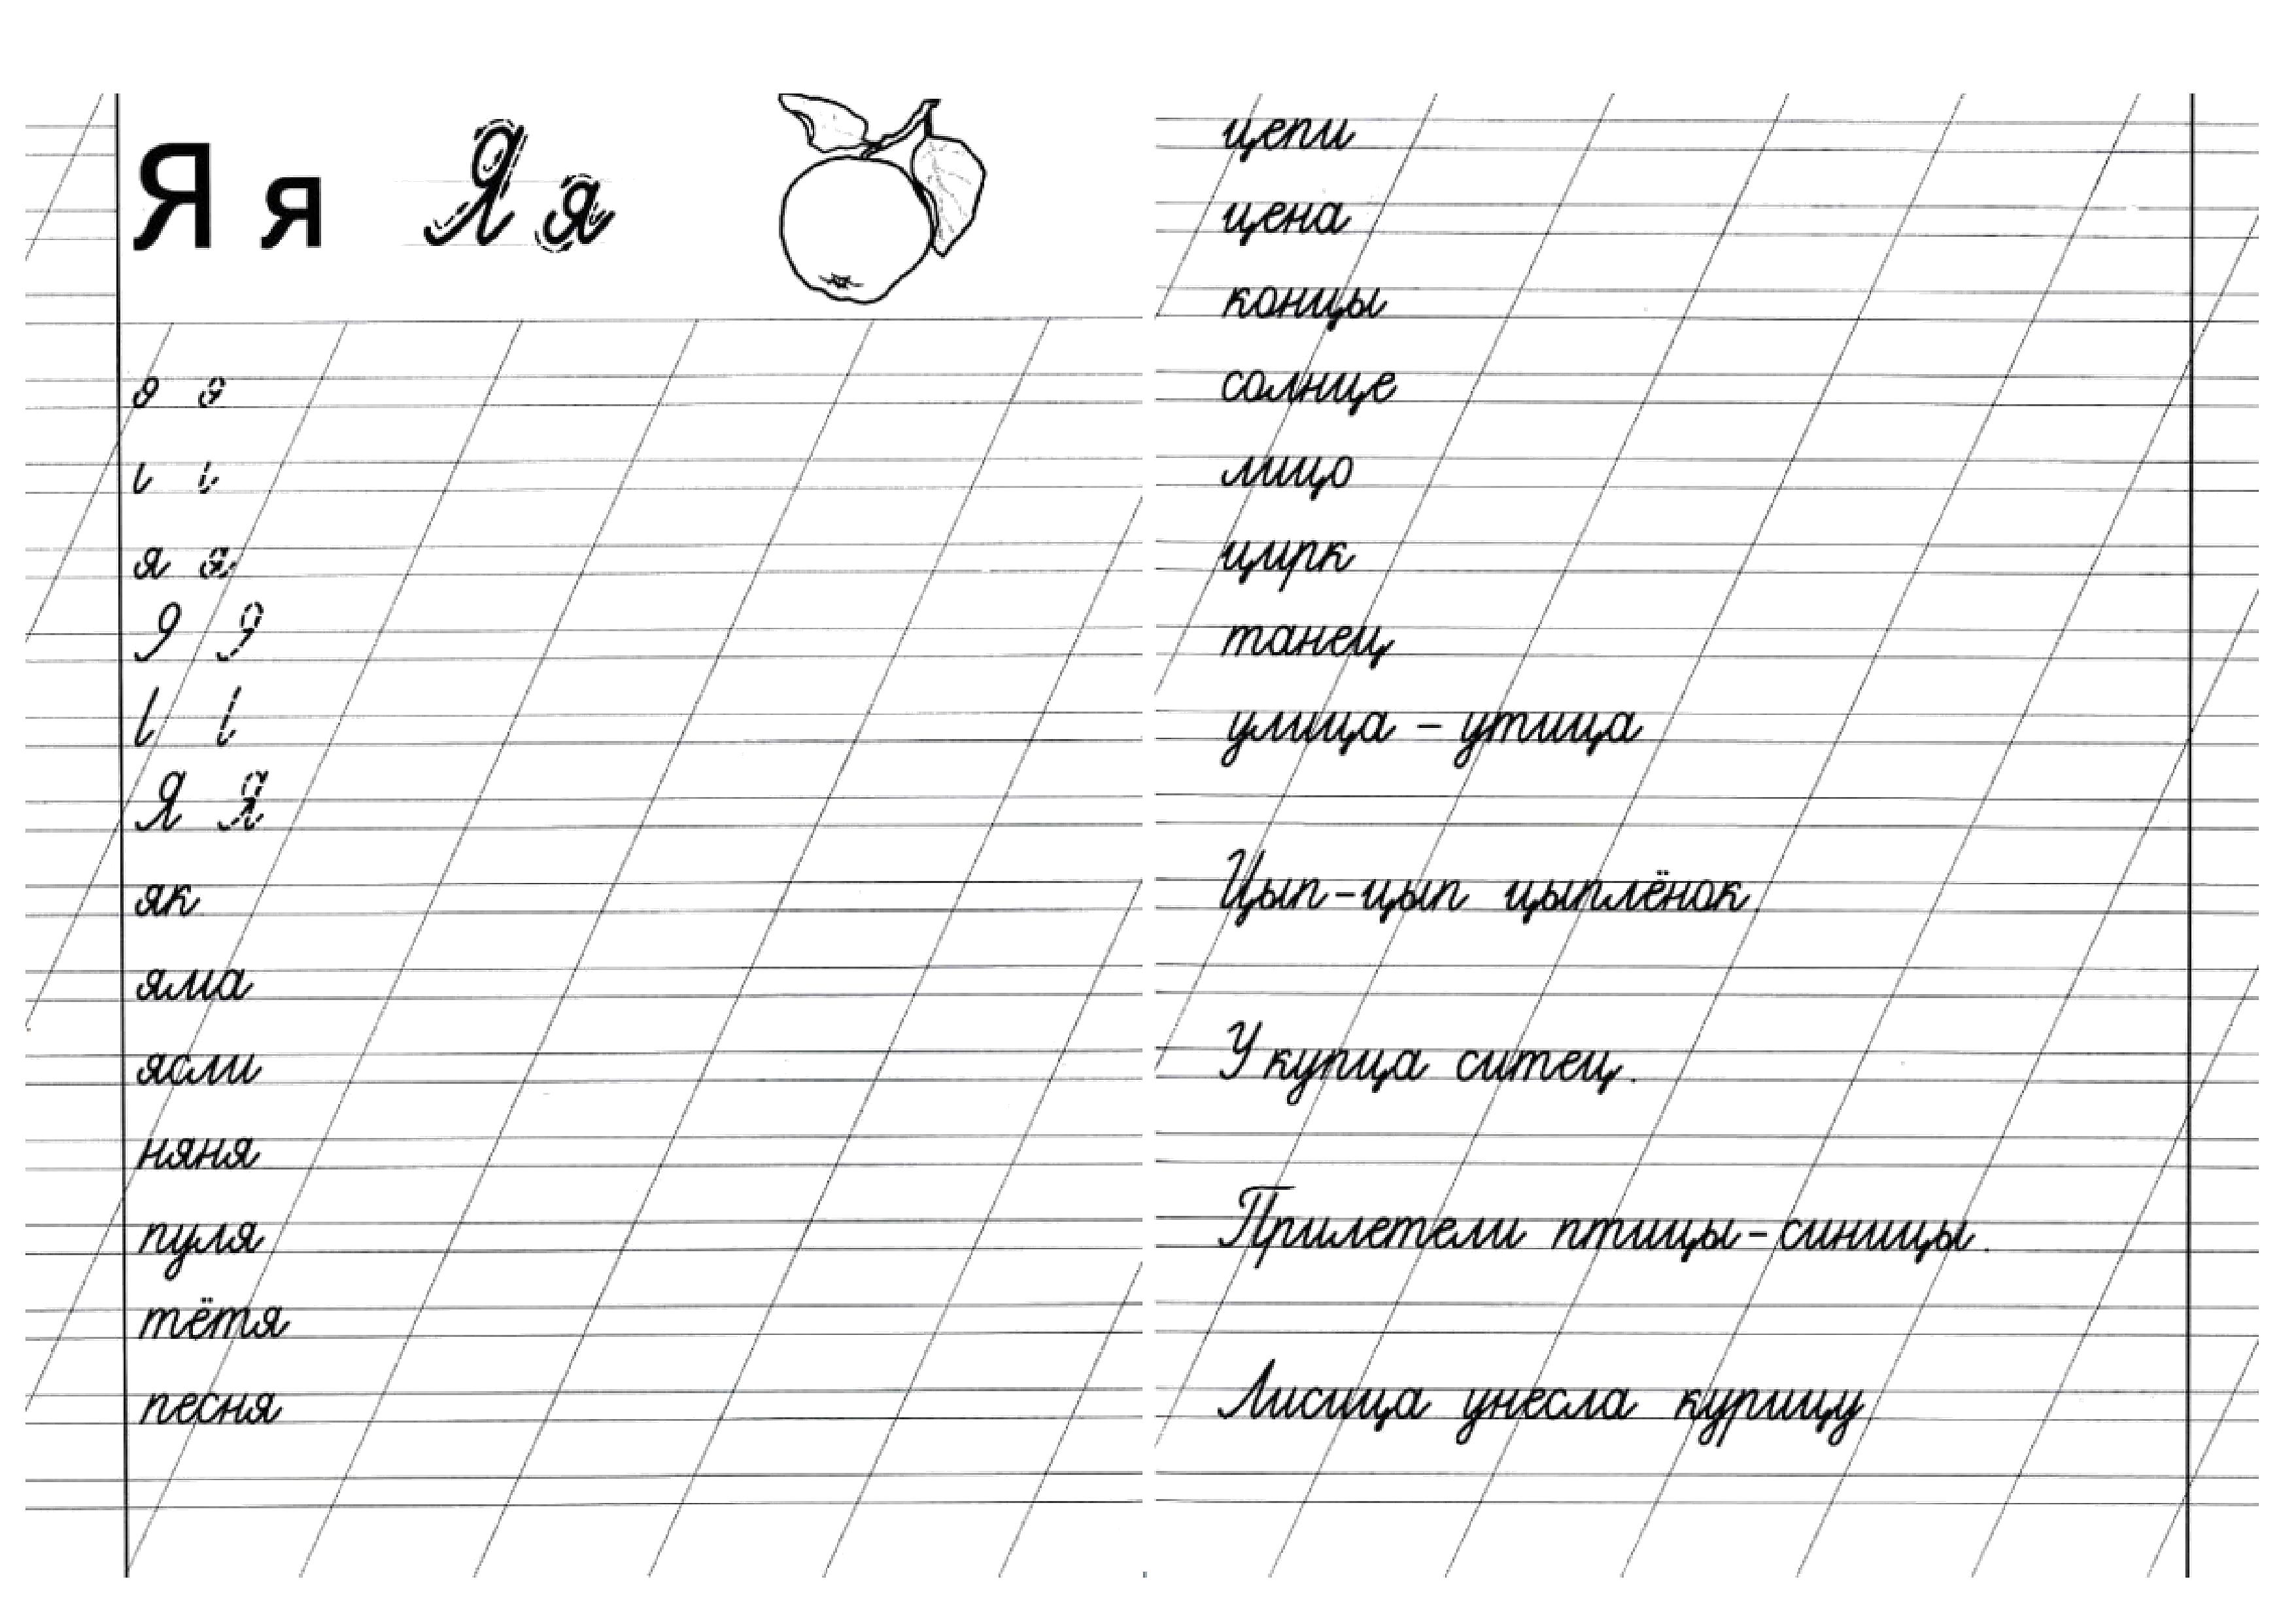 Я я Я я
я я
Я Я
як
яма
ясли
няня
пуля
тётя
песня
цепи
цена
концы
солнце
лицо
цирк
танец
улица - утица
Цып-цып цыплёнок
У купца ситец.
Прилетели птицы-синицы.
Лисица унесла курицу